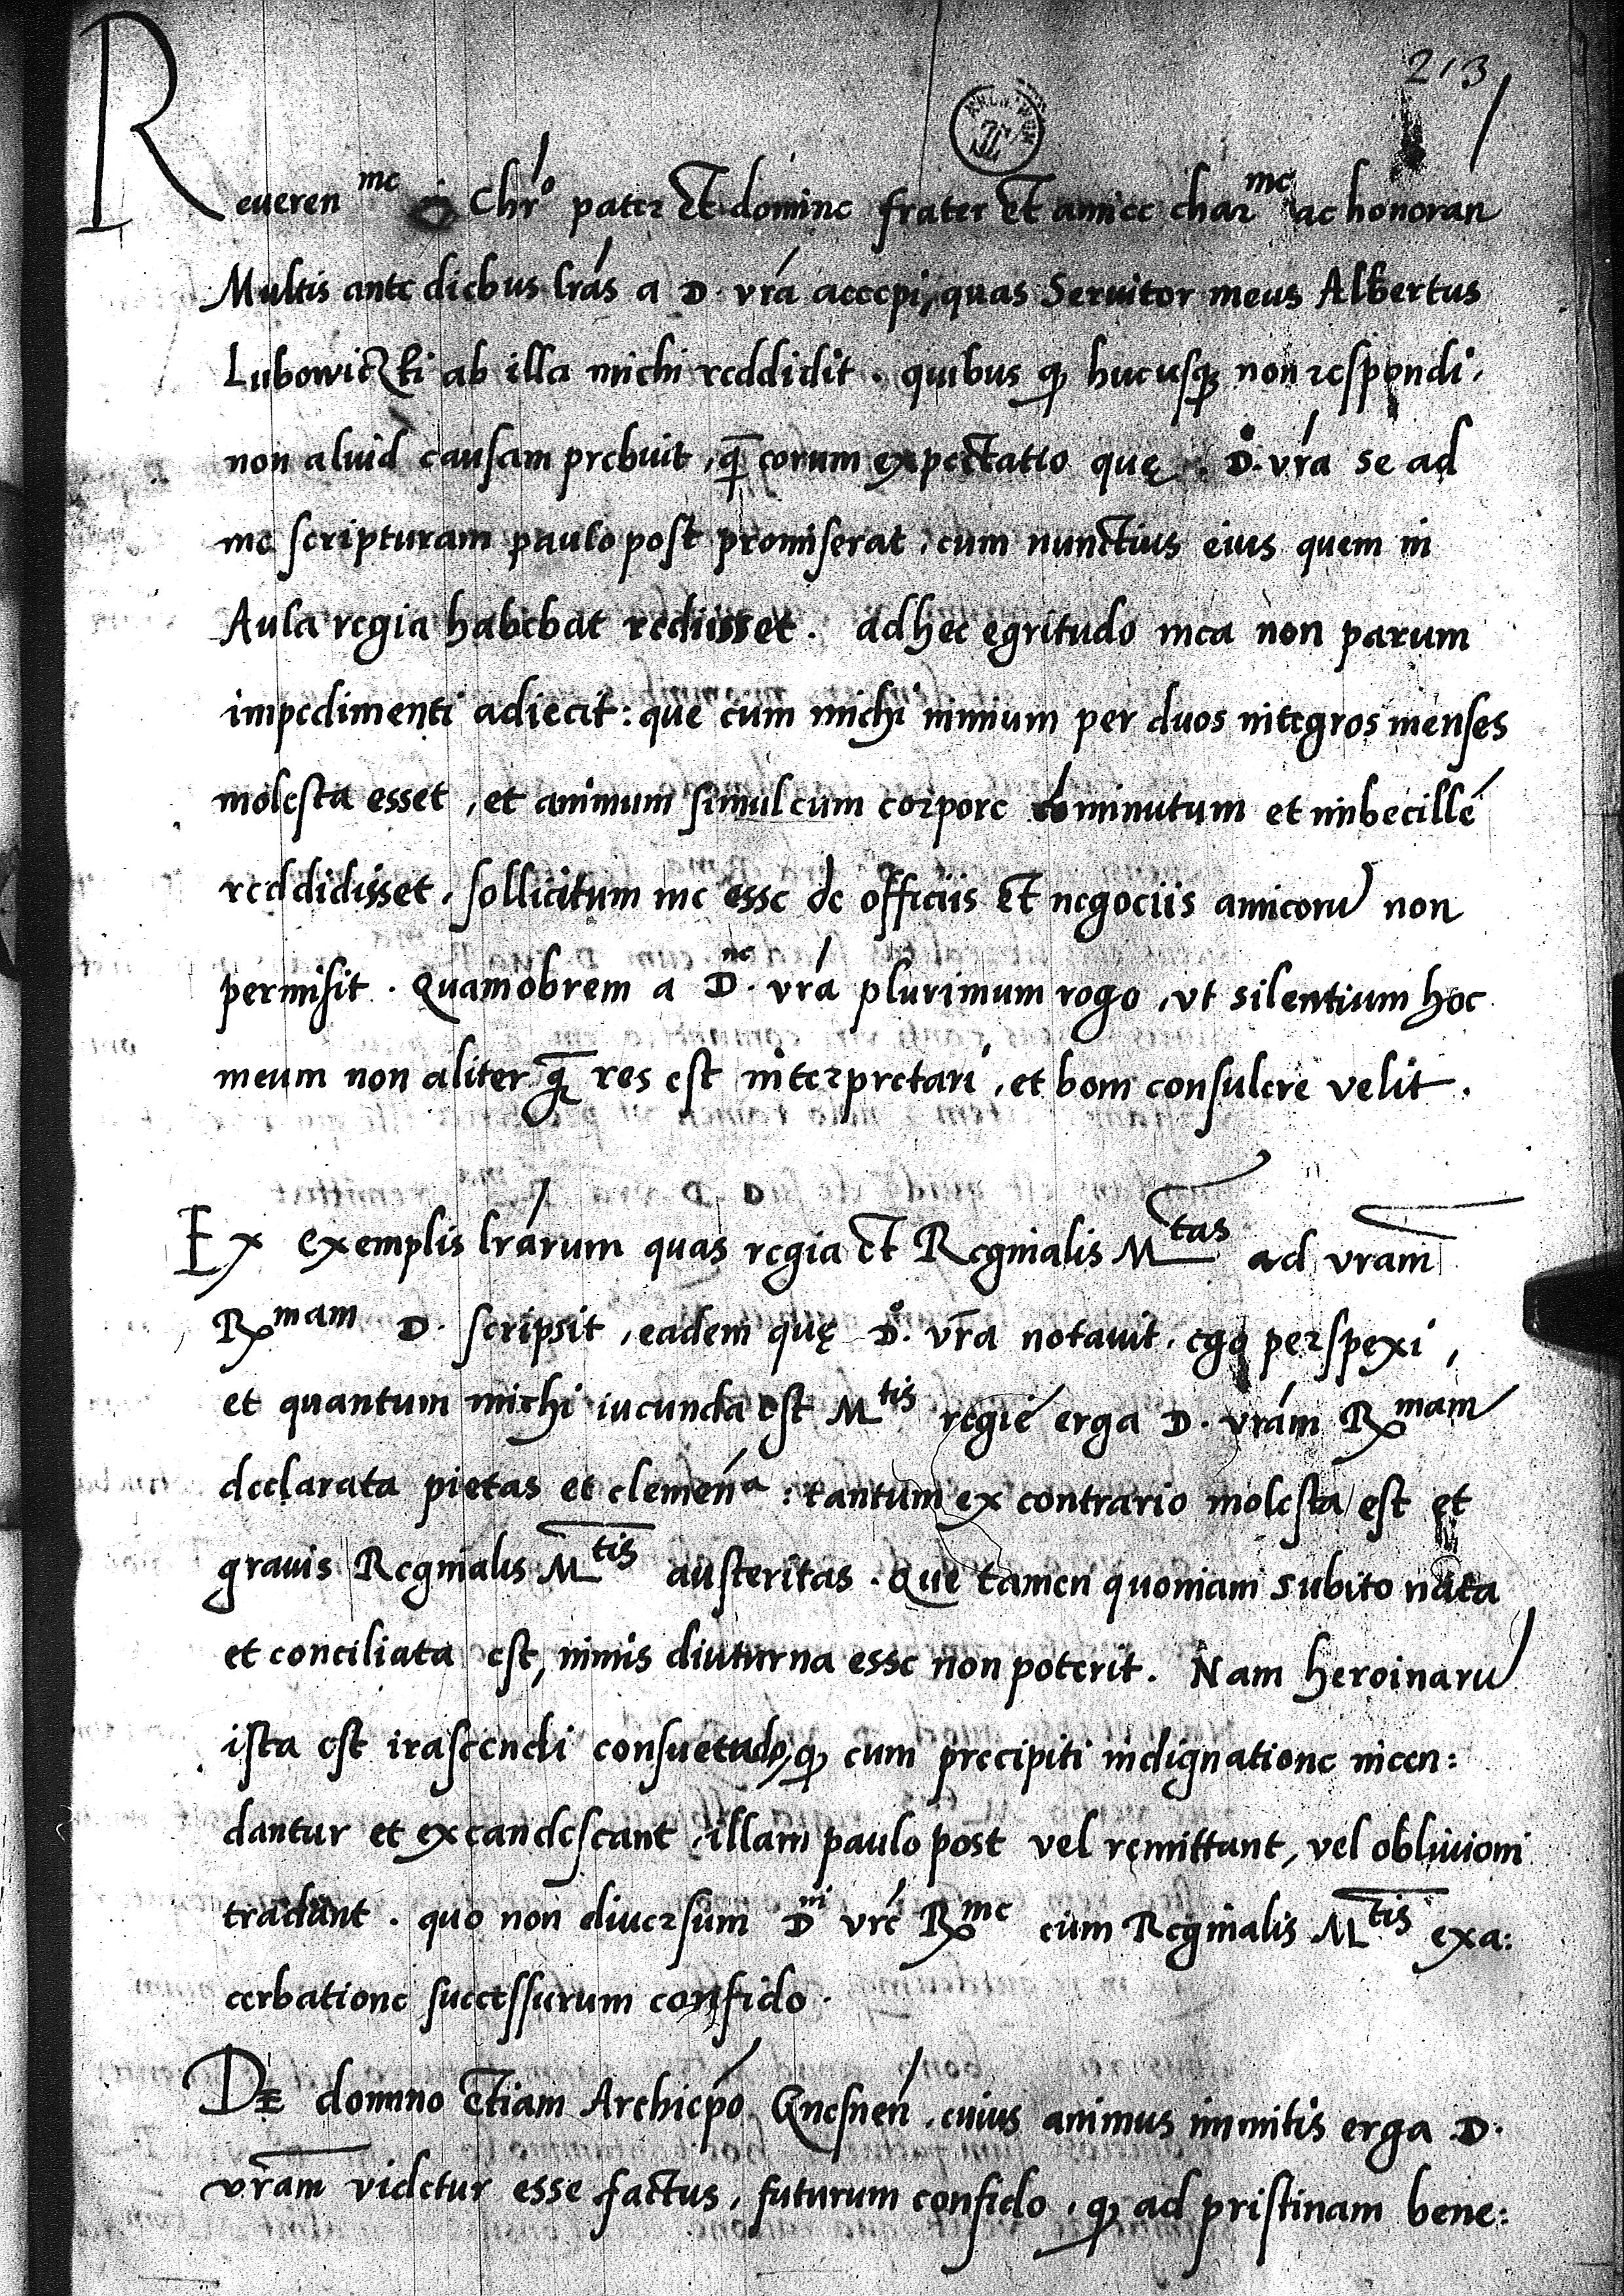 213
Reueren^mc in Chr̃o pater Et domine frater Et amice char^mc ac honoran
Multis ante diebus lrás a D. vrá accepi, quas Seruitor meus Albertus
Lubowiczki ab illa michi reddidit. quibus ꝙ hucusqꝫ non respondi,
non aluid causam prebuit, q̄ eorum expectatio quę. D^o. vrá se ad
me scripturam paulo post promiserat, cum nunctius eius quem in
Aula regia habebat rediisset. adhec egritudo mea non parum
impedimenti adiecit: que cum michi nimium per duos integros menses
molesta esset, et animum simul cum corpore diminutum et imbecillé
reddidisset, sollicitum me esse de officiis Et negociis amicorū non
permisit. Quamobrem a D^ne. vrá plurimum rogo, vt silentium hoc
meum non aliter q̄ res est interpretari, et boni consulere velit.
Ex exemplis lrárum quas regia Et Reginalis M^tas ad vram̄
R^mam D. scripsit, eadem quę D^o. vr̄a notauit, ego perspexi,
et quantum michi iucunda est M^tis regié erga D. vrám R^mam
declarata pietas et clemeń^a: tantum ex contrario molesta est et
grauis Reginalis M^tis austeritas. Que tamen quoniam subito nata
et conciliata est, nimis diuturna esse non poterit. Nam heroinarū
ista est irascendi consuetudo, ꝙ cum precipiti indignatione incen:
dantur et excandescant, illam paulo post vel remittant, vel obliuioni
tradant. quo non diuersum D^ni vré R^me cum Reginalis M^tis exa:
cerbatione successurum confido.
DE domino Etiam Archiepó Gnesneń, cuius animus immitis erga D.
vr̄am videtur esse factus, futurum confido, ꝙ ad pristinam bene: